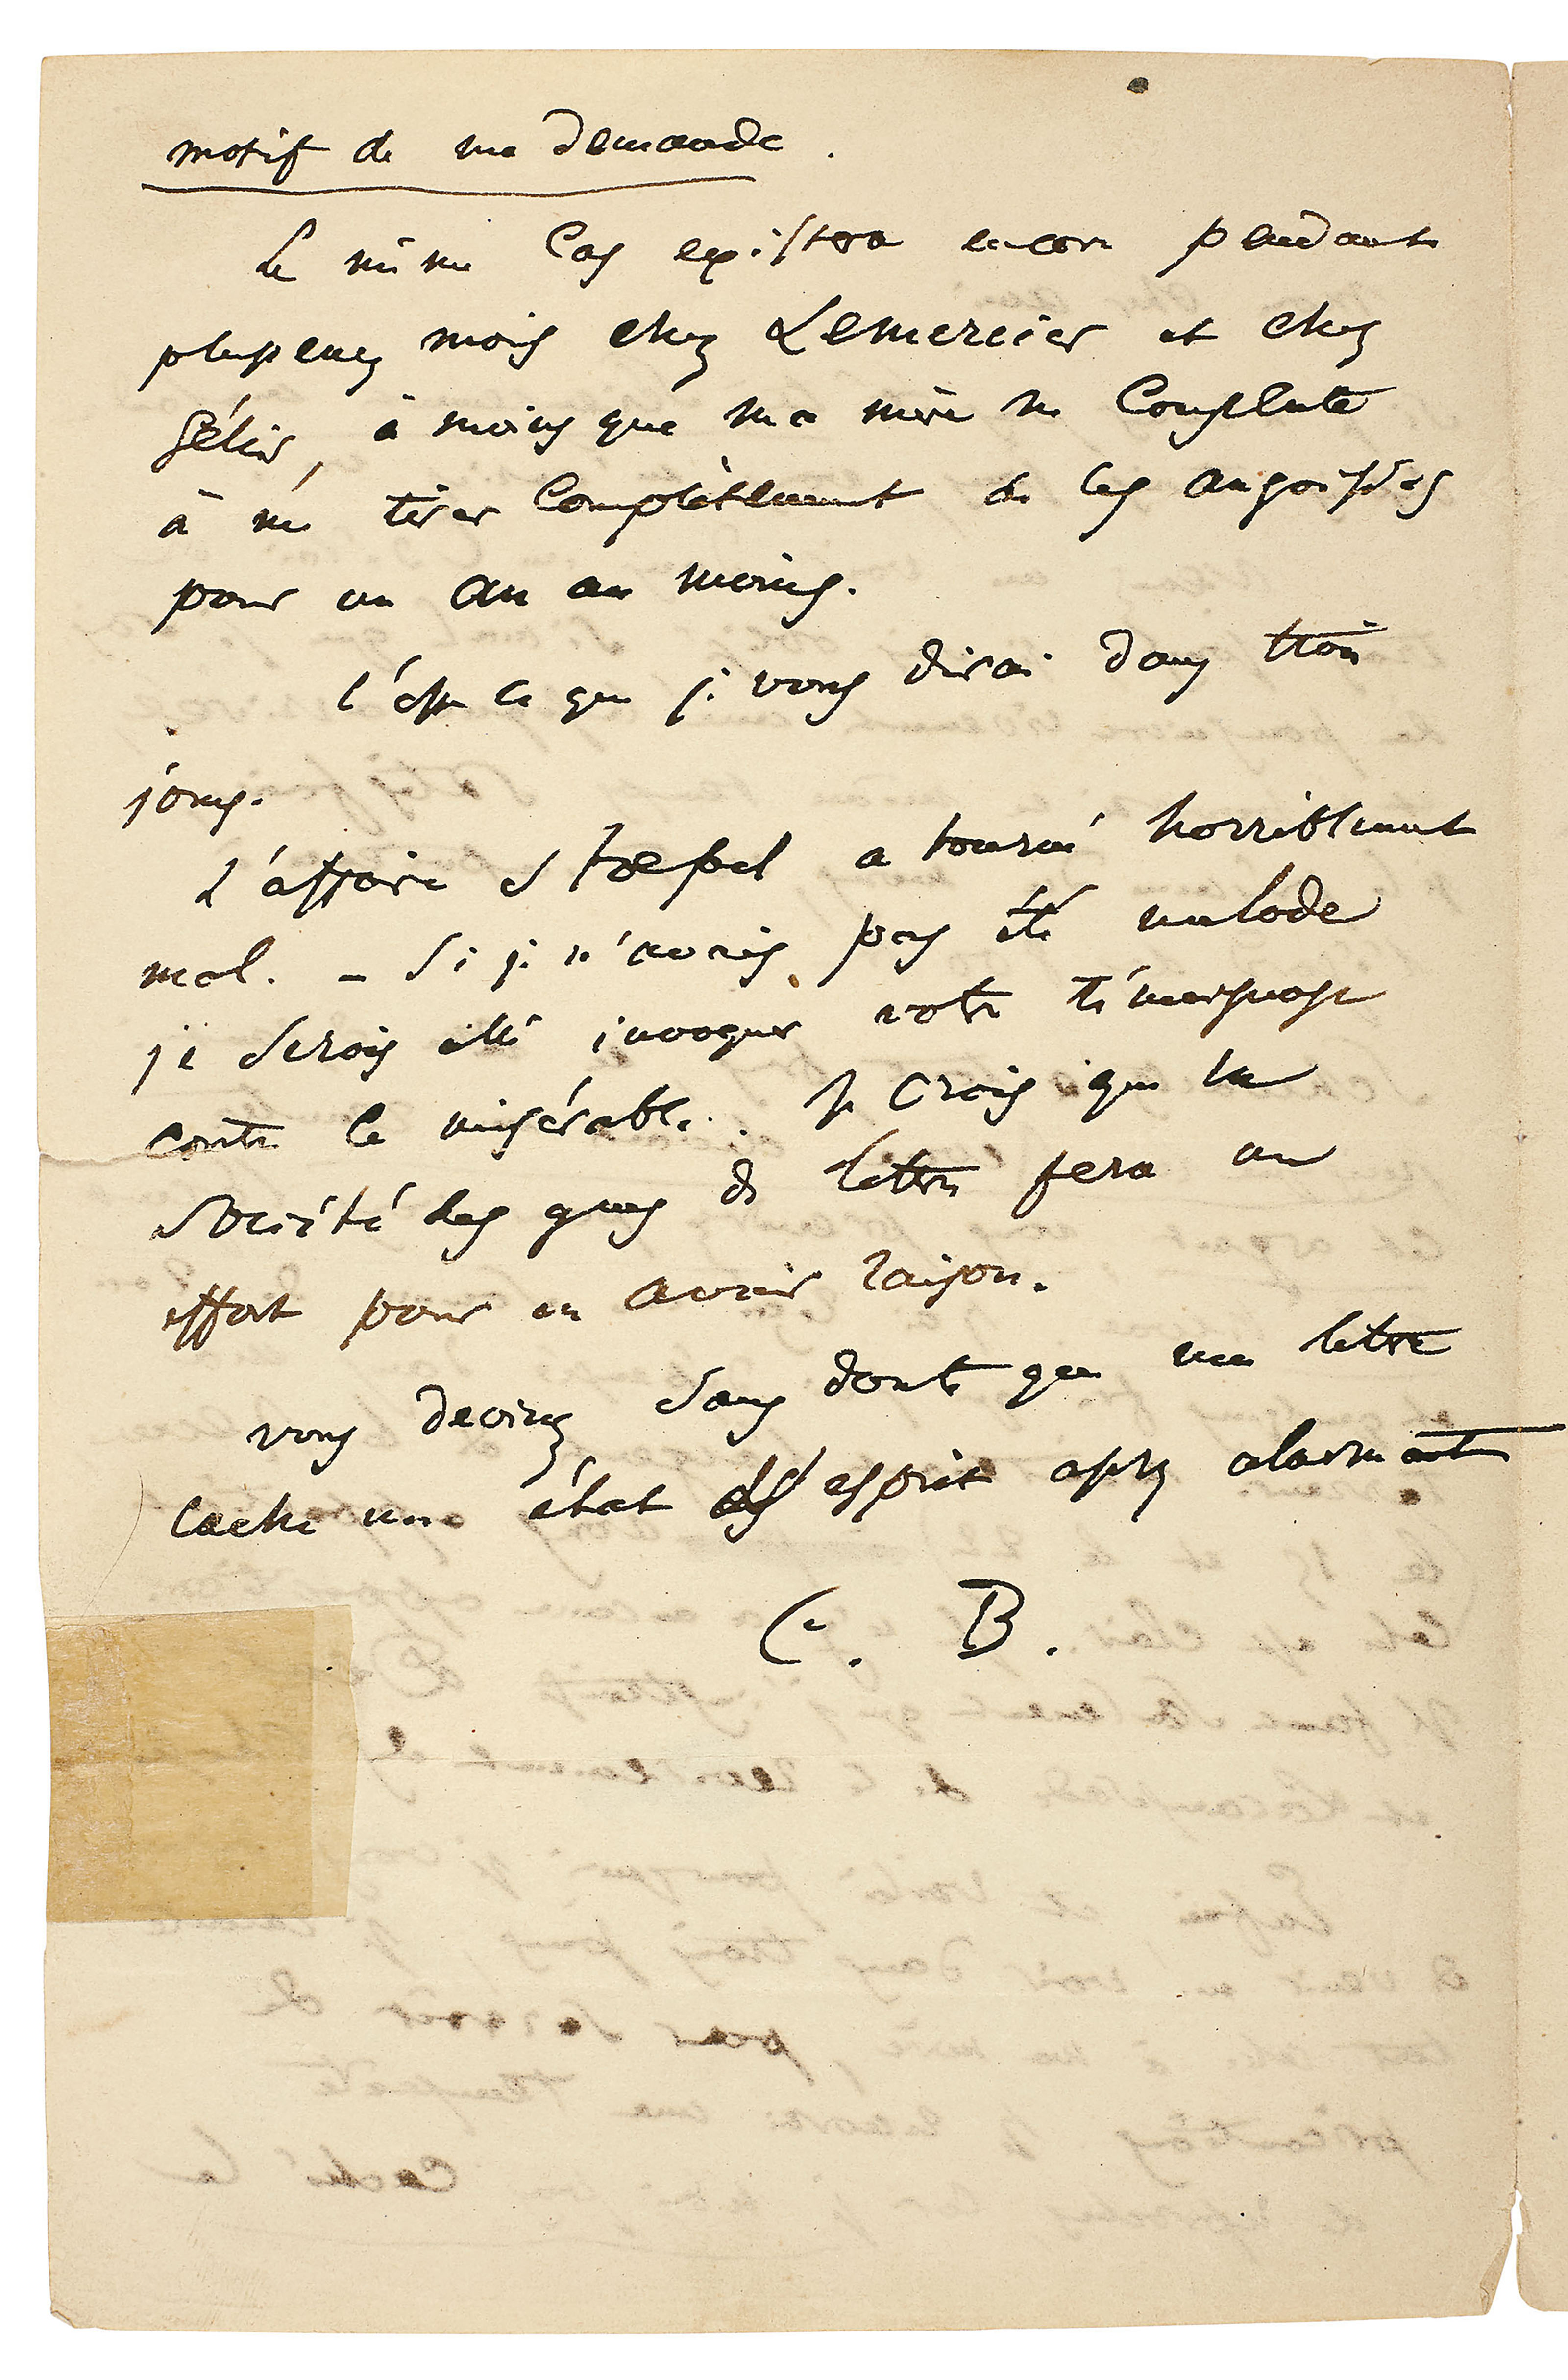 motif de ma demande.
Le même cas existera encore pendant
plusieurs mois chez Lemercier et chez
Gélis, à moins que ma mère ne consente
à me tirer complètement de ces angoisses
pour un an au moins.
C'est ce que je vous dirai dans trois
jours.
L'affaire Stoepel a tourné horriblement
mal. – Si je n'avais pas été malade
je serais allé invoquer votre témoignage
contre ce misérable. Je crois que la
Société des gens de lettres fera un
effort pour en avoir raison.
Vous devinez sans doute que ma lettre
cache un état d'esprit assez alarmant
C. B.